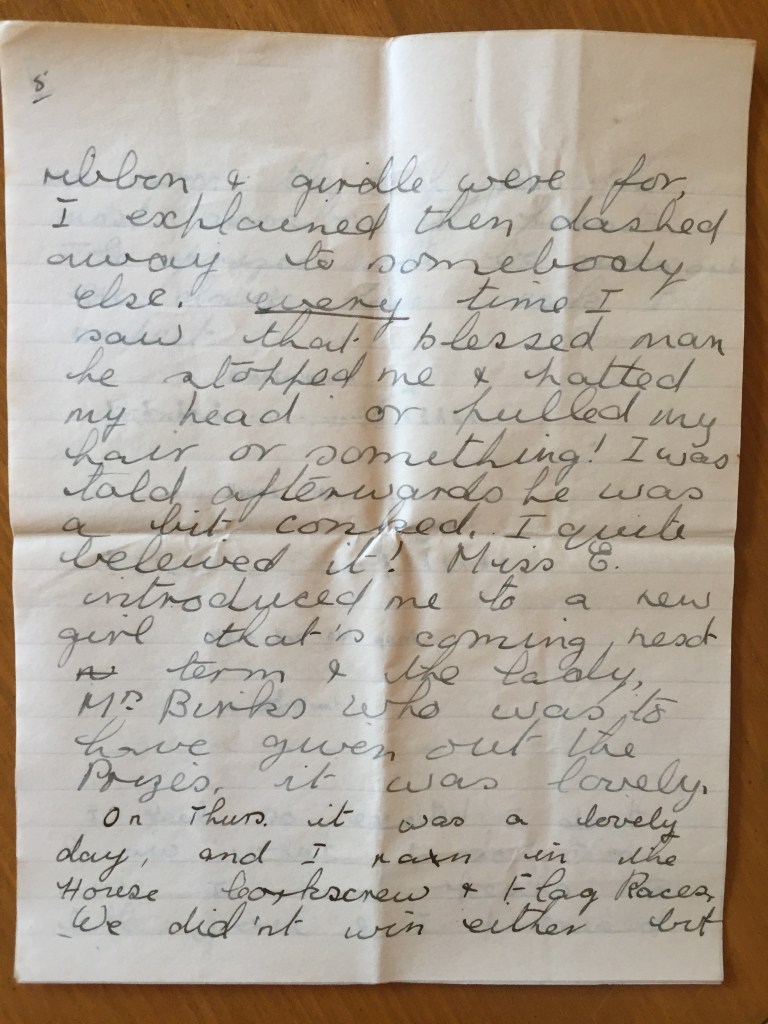 8
ribbon & girdle were for,
I explained then dashed
away to somebody
else. every time I
saw that blessed man
he stopped me & patted
my head or pulled my
hair or something! I was
told afterwards he was
a bit conked. I quite
beleived it! Miss E.
introduced me to a new
girl that's coming next
term & the lady,
Mrs Binks who was to
have given out the
Prizes, it was lovely.
On Thurs. it was a lovely
day, and I ran in the
House Corkscrew & Flag Races,
We did'nt win either but